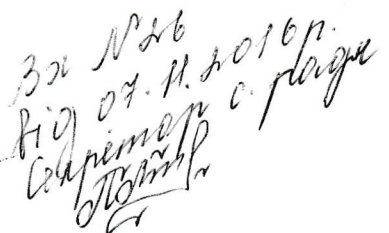 Вх №26
від 07.11.2016р.
Секретар с. ради